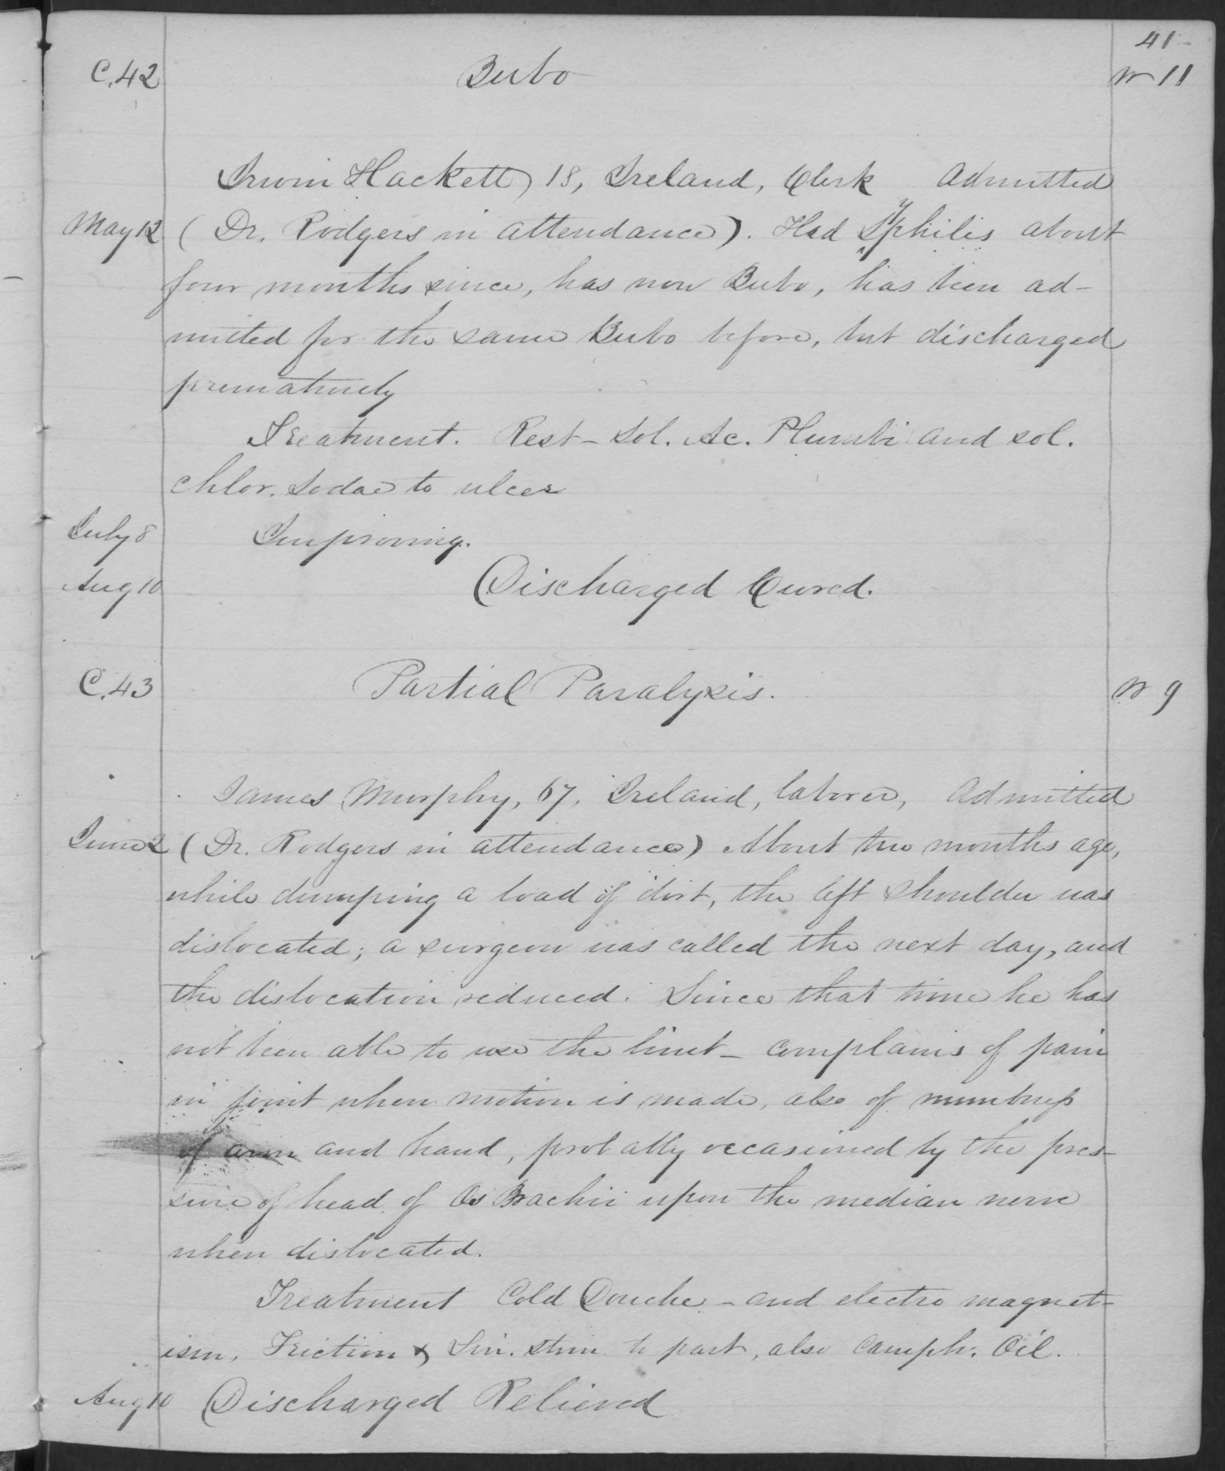 41-
C.42 Bubo W 11
Irwin Hackett, 18, Ireland, Clerk Admitted
May 12 (Dr. Rodgers in attendance). Had Syphilis about
four months since, has now Bubo, has been ad-
mitted for the same Bubo before, but discharged
prematurely
Treatment. Rest - Sol. Ac. Plumbi and sol.
Chlor. Sodae to ulcer
July 8 Improving.
Aug 10 Discharged Cured.
C.43 Partial Paralysis. W 9
James Murphy, 67, Ireland, laborer, Admitted
June 2 (Dr. Rodgers in attendance) About two months ago,
while dumping a load of dirt, the left shoulder was
dislocated; a surgeon was called the next day, and
the dislocation reduced. Since that time he has
not been able to use the limb - complains of pain
in joint when motion is made, also of numbness
of arm and hand, probably occasioned by the pres-
sure of head of Os Brachii upon the median nerve
when dislocated.
Treatment Cold Douche - and electro magnet-
ism, Friction & Lin. stim to part, also Camph. Oil.
Aug 10 Discharged Relieved